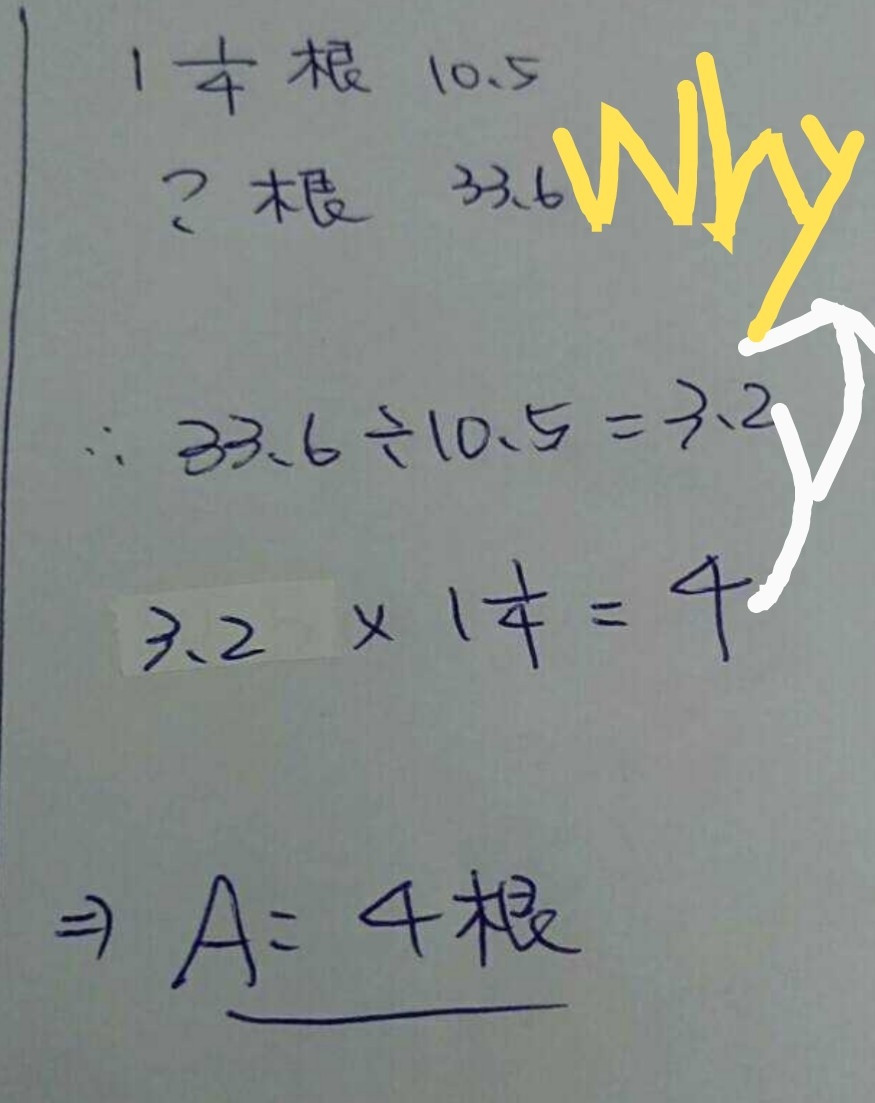 1 1/4 根 10.5
? 根 33.6
Why
∴ 33.6 ÷ 10.5 = 3.2
3.2 × 1 1/4 = 4
⇒ A = 4根